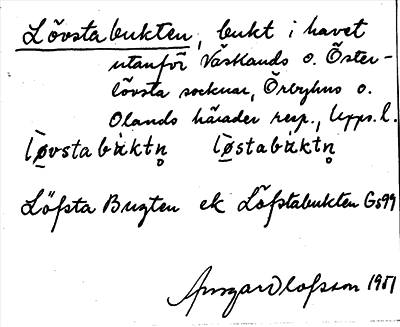 Lövstabukten, bukt i havet
utanför Västlands o. Öster-
lövsta socknar, Örbyhus o.
Olands härader resp., Upps. l.
lø̀vstabùktn̥ lø̀stabùktn̥
Löfsta Bugten ek Löfstabukten Gs99
Ansgar Olofsson 1951